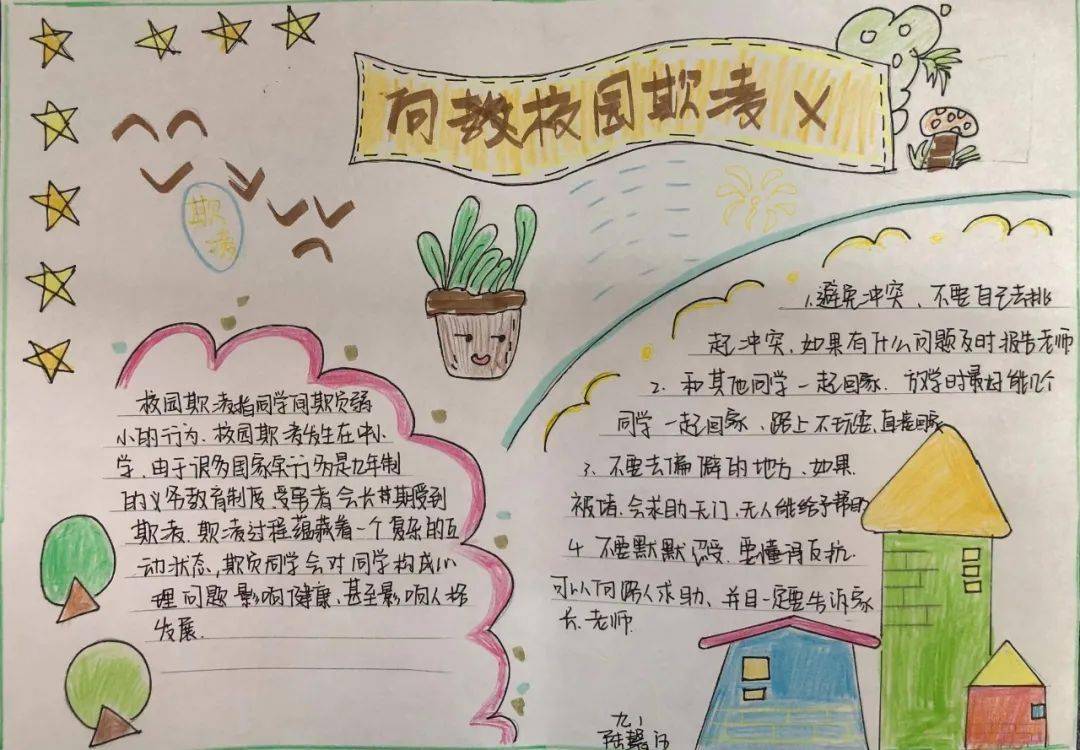 向教校园欺凌X
欺凌
校园欺凌指同学间欺负弱
小的行为、校园欺凌发生在中小
学、由于很多国家实行多是九年制
的义务教育制度、受害者会长其期受到
欺凌、欺凌过程蕴藏着一个复杂的互
动状态,欺负同学会对同学构成心
理问题影响健康、甚至影响人格
发展.
1.避免冲突、不要自己去挑
起冲突、如果有什么问题及时报告老师
2、和其他同学一起回家、放学时最好能几个
同学一起回家、路上不玩耍、直接回家
3、不要去偏僻的地方、如果
被堵、会求助无门、无人能给予帮助
4 不要默默忍受、要懂得反抗、
可以向路人求助、并且一定要告诉家
长、老师.
九、1